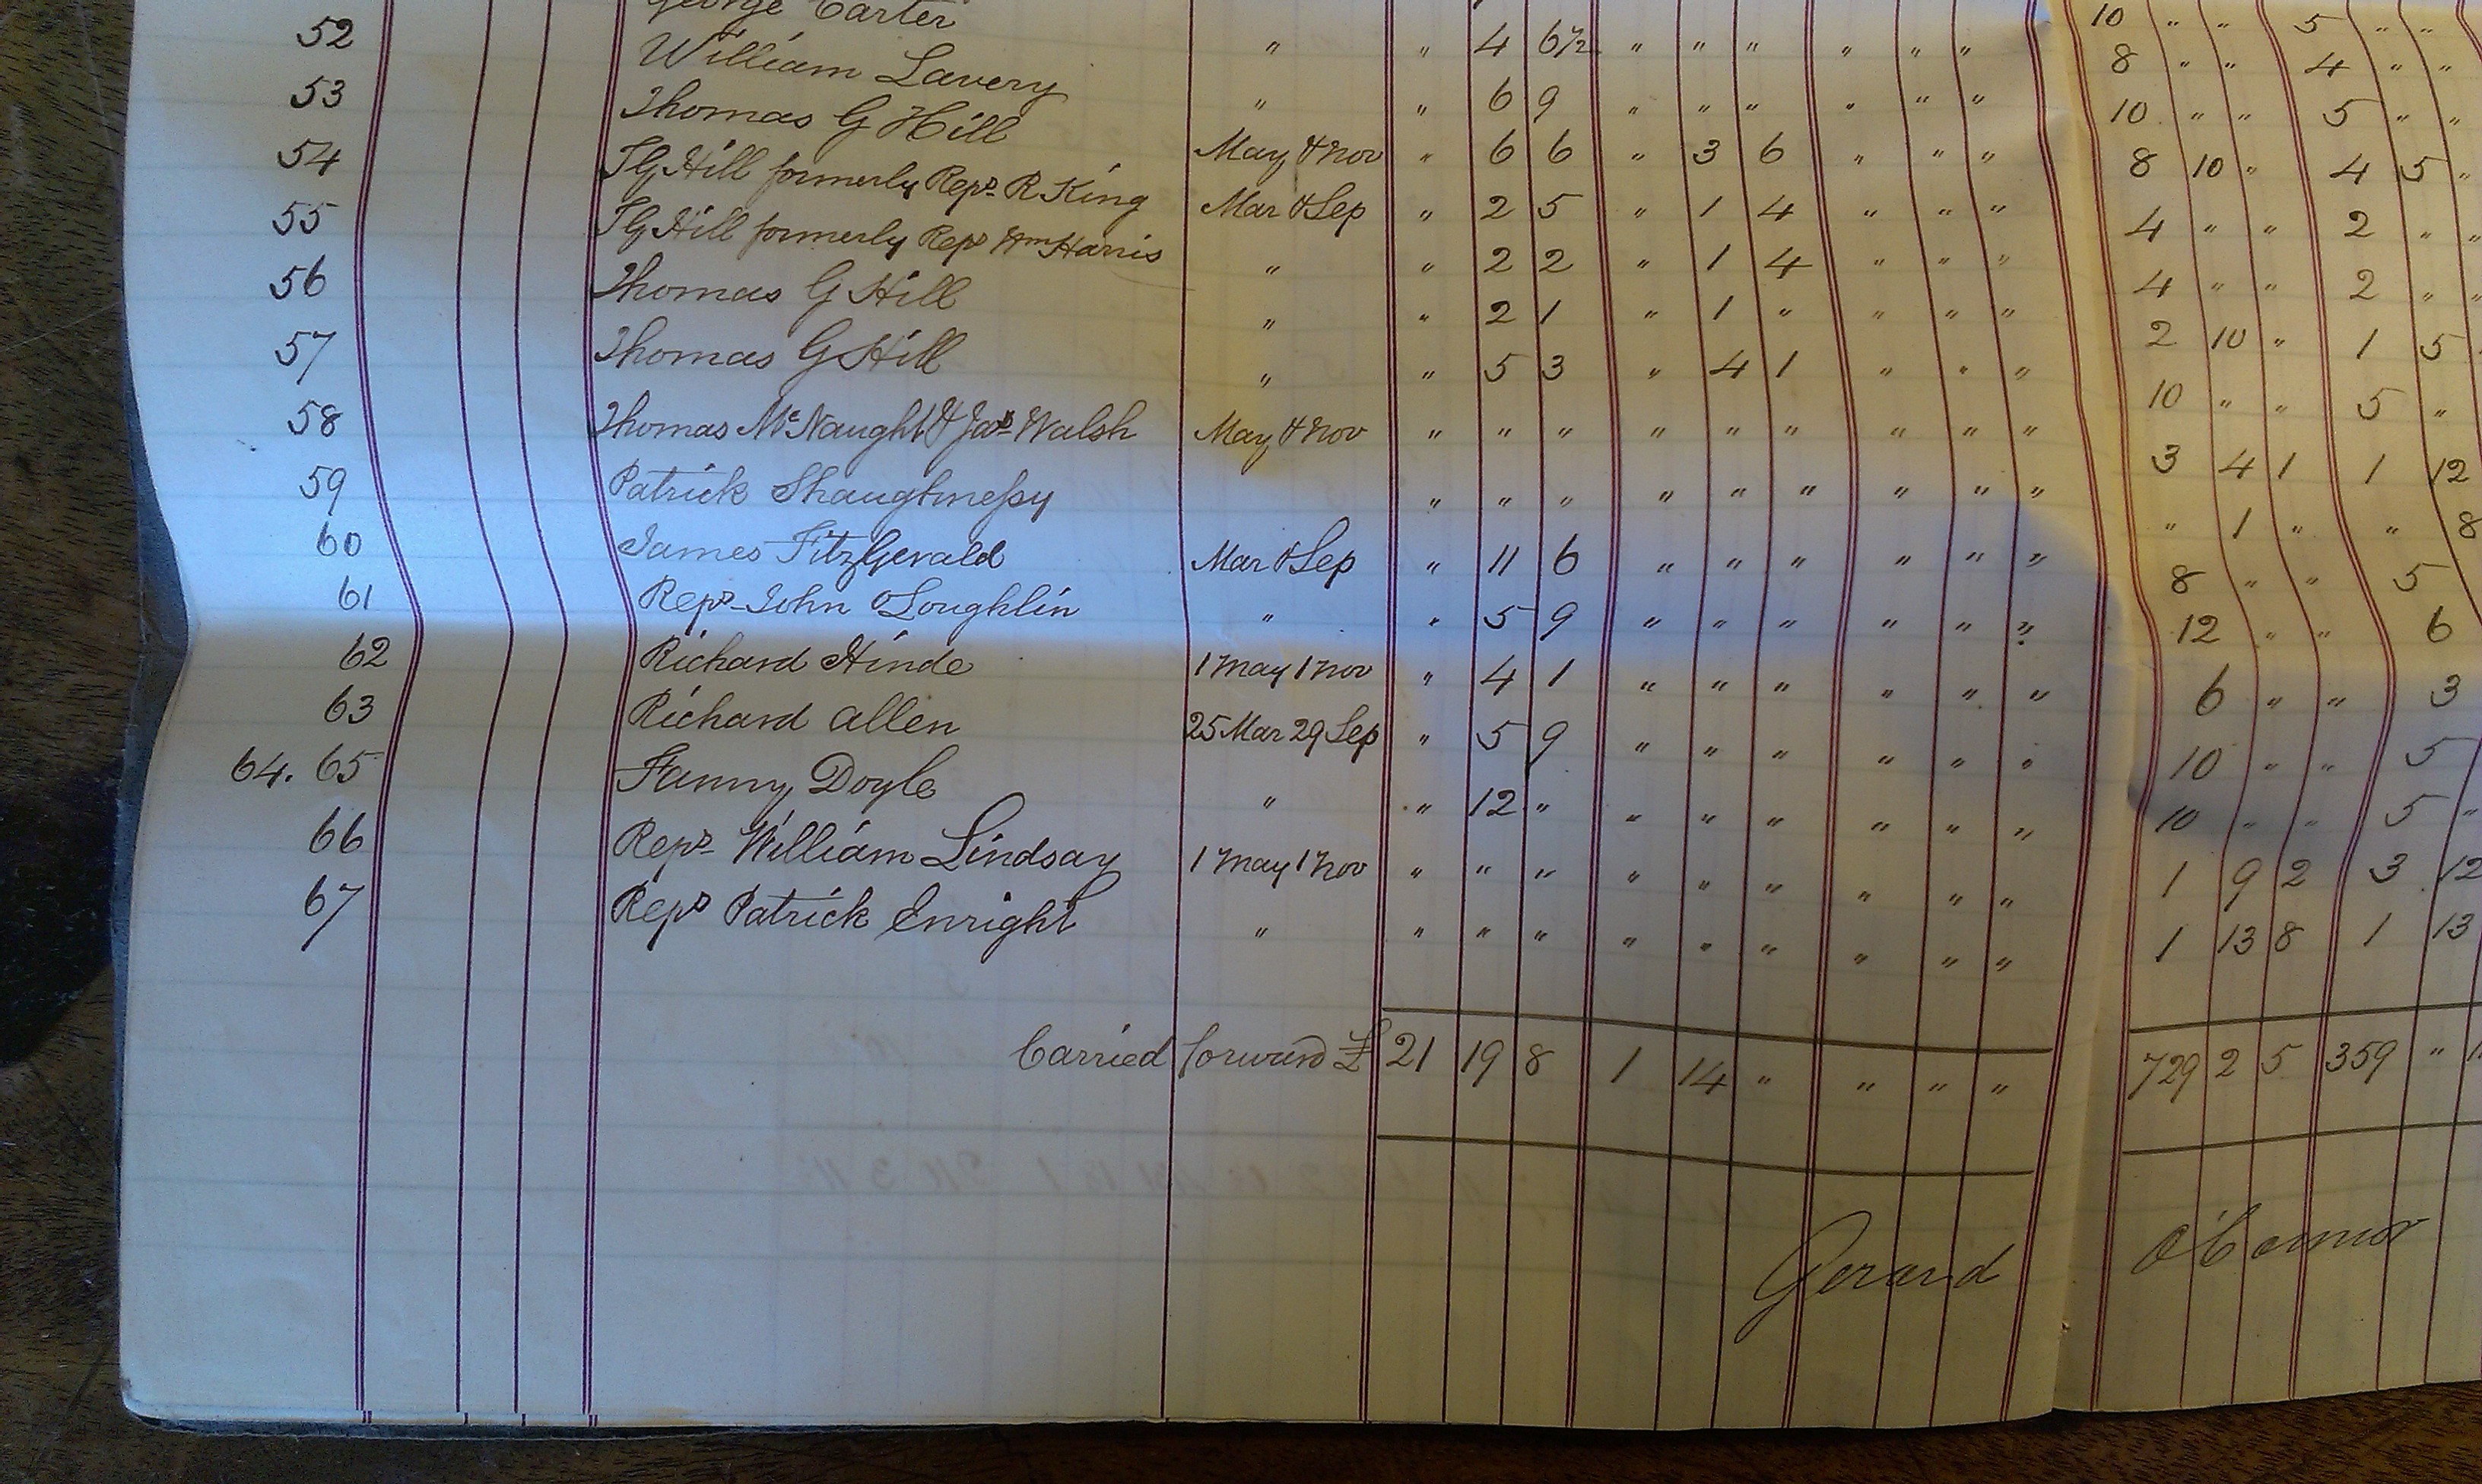 10 " " 5 " "
George Carter " " 4 6½ " " " " " " 8 " " 4 " "
52 William Lavery " " 6 9 " " " " " " 10 " " 5 " "
53 Thomas G Hill May & Nov " 6 6 " 3 6 " " " 8 10 " 4 5 "
54 T G Hill formerly Reps R King Mar & Sep " 2 5 " 1 4 " " " 4 " " 2 " "
55 T G Hill formerly Reps Wm Harris " " 2 2 " 1 4 " " " 4 " " 2 " "
56 Thomas G Hill " " 2 1 " 1 " " " " 2 10 " 1 5
57 Thomas G Hill " " 5 3 " 4 1 " " " 10 " " 5 "
58 Thomas McNaught & Jas Walsh May & Nov " " " " " " " " " 3 4 1 1 12
59 Patrick Shaughnessy " " " " " " " " " " 1 " " 8
60 James FitzGerald Mar & Sep " 11 6 " " " " " " 8 " " 5
61 Reps John O'Loughlin " " 5 9 " " " " " " 12 " " 6
62 Richard Hinde 1 May 1 Nov " 4 1 " " " " " " 6 " " 3
63 Richard Allen 25 Mar 29 Sep " 5 9 " " " " " " 10 " " 5
64. 65 Fanny Doyle " " 12 " " " " " " " 10 " " 5 "
66 Reps William Lindsay 1 May 1 Nov " " " " " " " " " 1 9 2 3 12
67 Reps Patrick Enright " " " " " " " " " " 1 13 8 1 13
Carried forward £ 21 19 8 1 14 " " " " 729 2 5 359 "
Gerard O'Connor